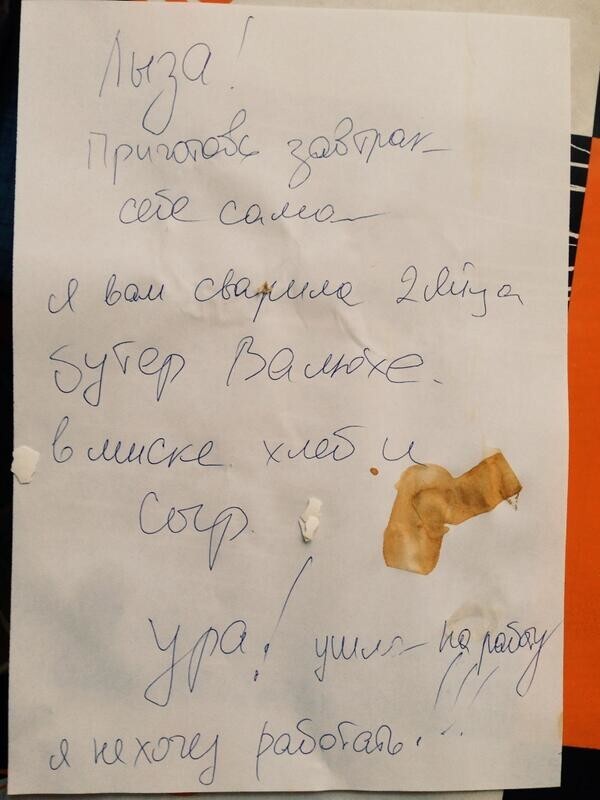 Лыза!
Приготовь завтрак
себе сама
я вам сварила 2 яйца
бутер Валюхе.
в миске хлеб и
сыр.
ура! ушла на работу
я не хочу работать!!!